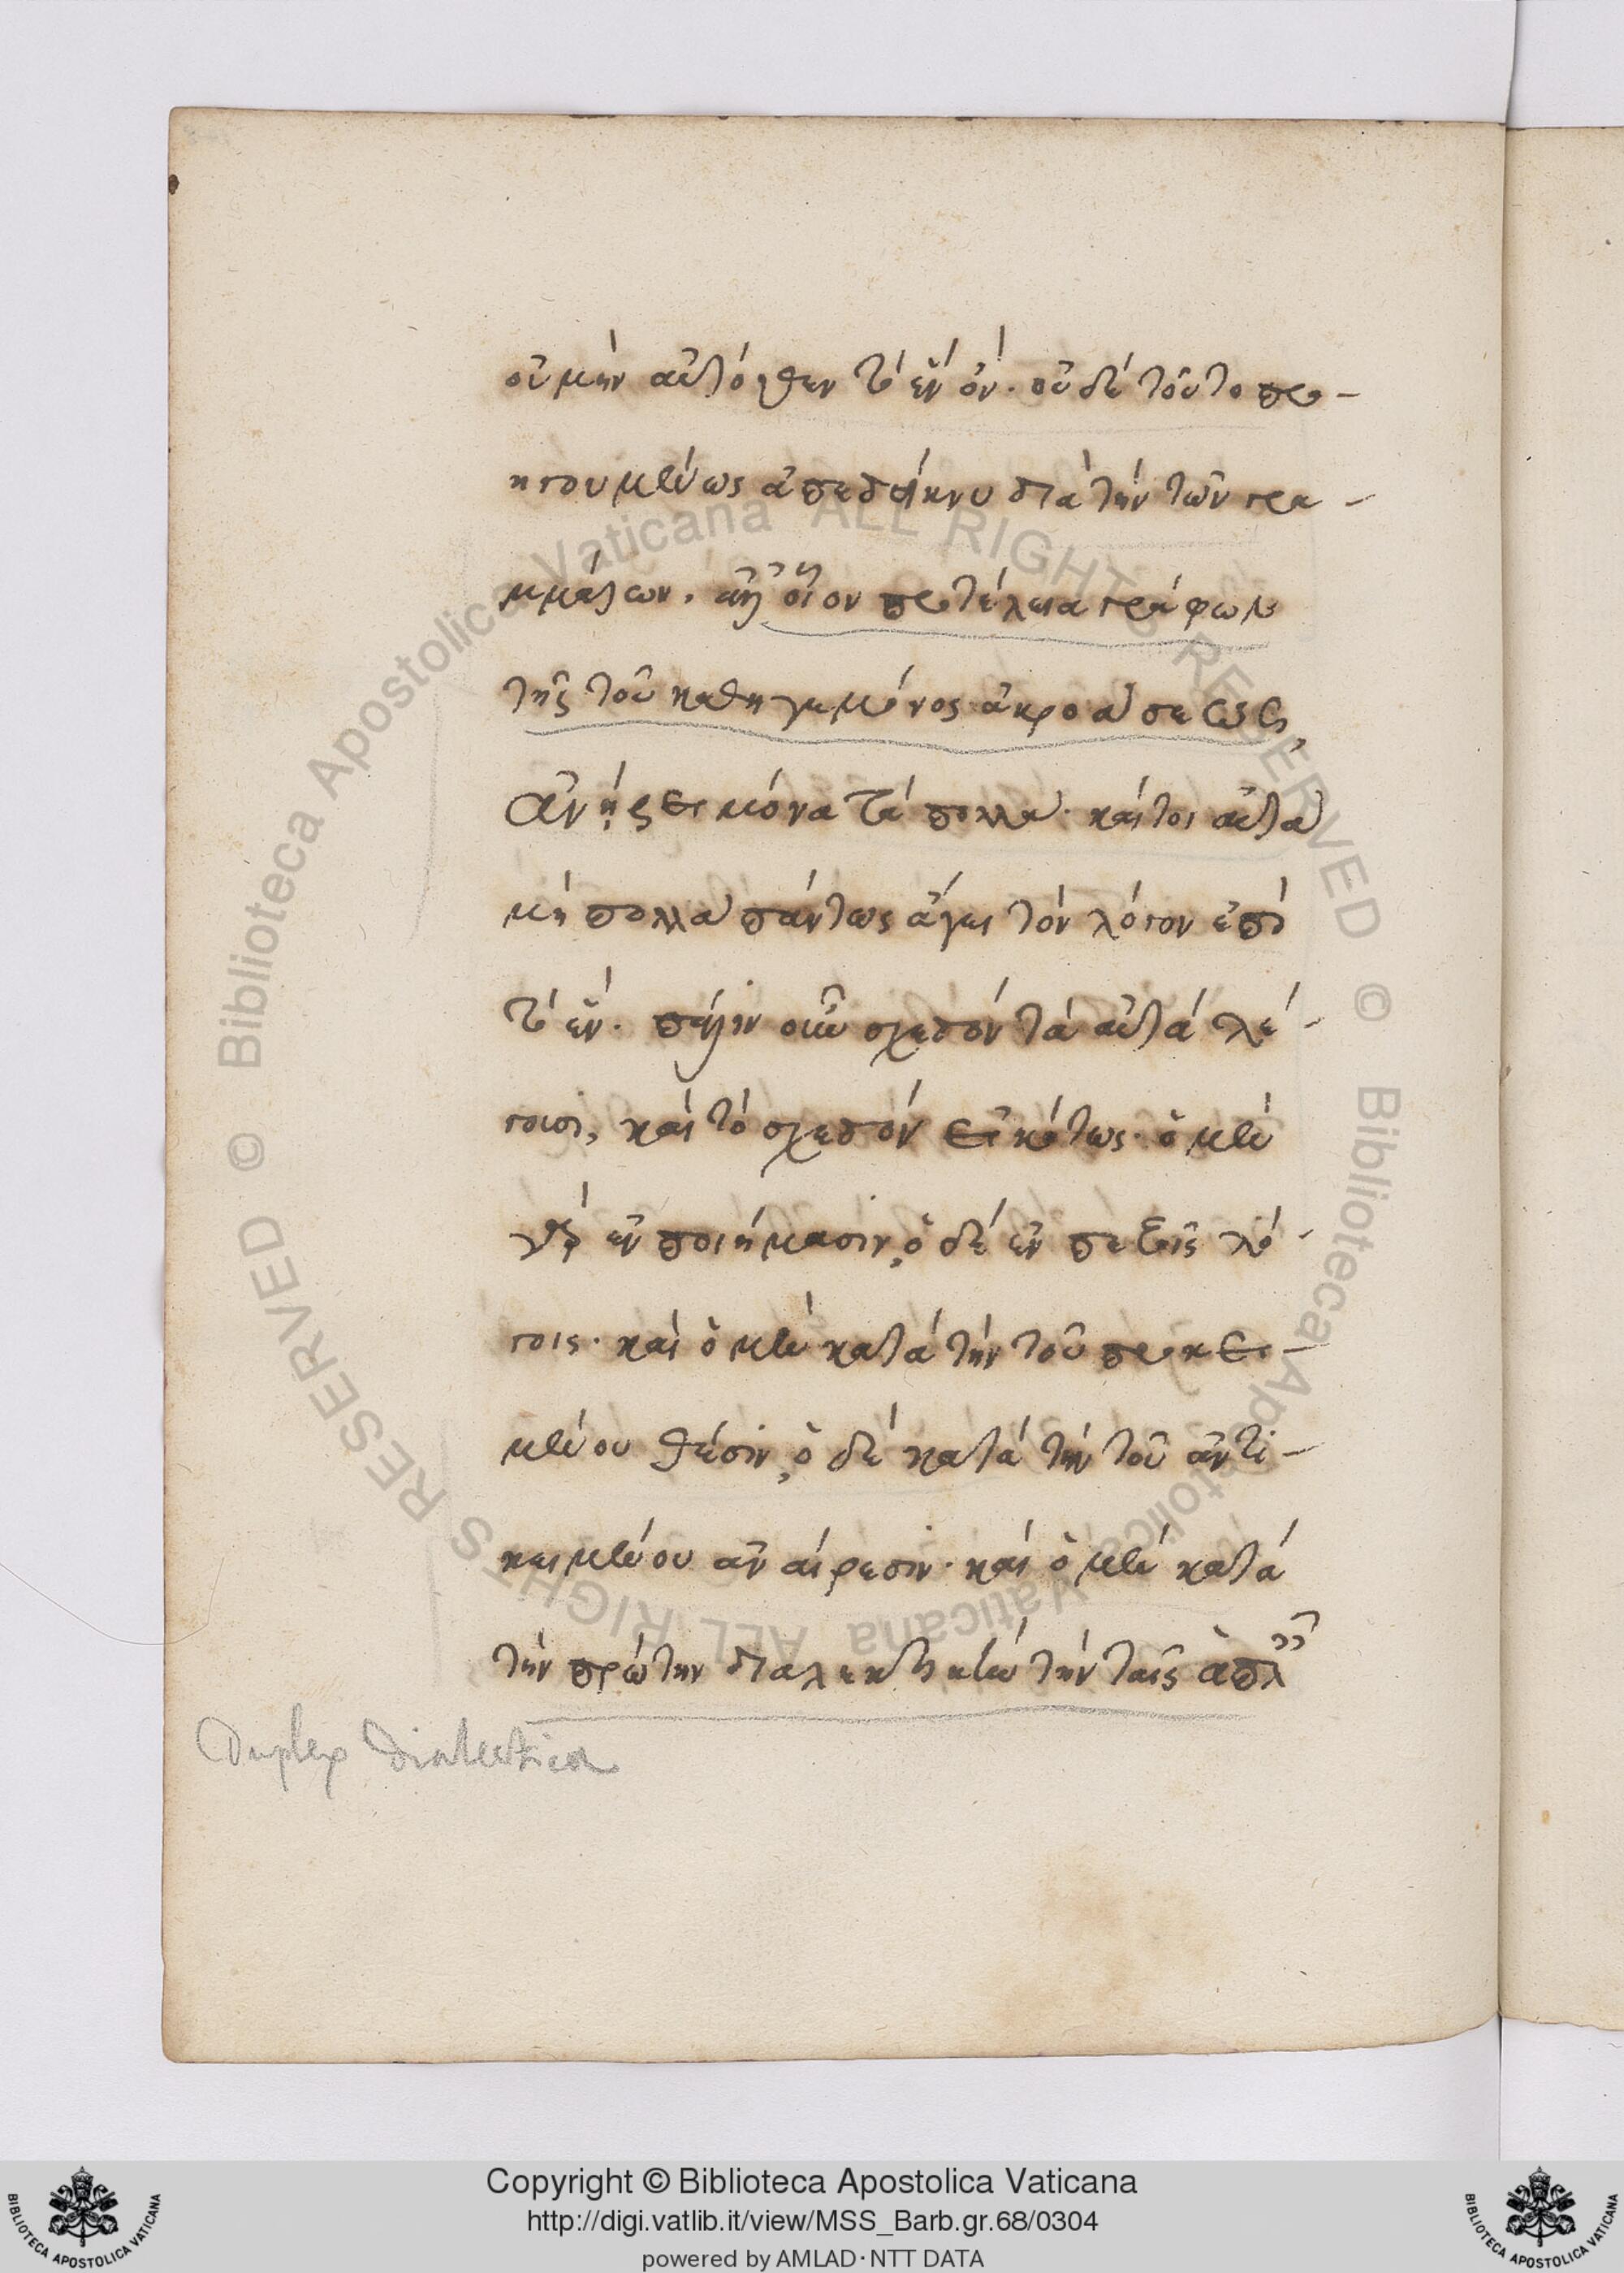 οὐ μὴν αὐτόθεν τὸ ἓν ὄν. οὐδὲ τοῦτο προ-
ηγουμένως ἀπεδείκνυ διὰ τὴν τῶν γρα-
μμάτων. ἀλλ' οἷον προτέλεια γράφων
τῆς τοῦ καθηγεμόνος ἀκροάσεως,
ἀνῄρει μόνα τὰ πολλά. καίτοι αὐτὰ
μὴ πολλὰ πάντως ἄγει τὸν λόγον ἐπὶ
τὸ ἕν. πάλιν οὖν σχεδὸν τὰ αὐτὰ λέ-
γουσι, καὶ τὸ σχεδὸν εἰκότως. ὁ μὲν
γὰρ ἐν ποιήμασιν, ὁ δὲ ἐν πεζοῖς λό-
γοις. καὶ ὁ μὲν κατὰ τὴν τοῦ προκει-
μένου θέσιν, ὁ δὲ κατὰ τὴν τοῦ ἀντι-
κειμένου ἀναίρεσιν. καὶ ὁ μὲν κατὰ
τὴν πρώτην διαλεκτικὴν τὴν ταῖς ἁπλ
Duplex dialectica
Copyright © Biblioteca Apostolica Vaticana
http://digi.vatlib.it/view/MSS_Barb.gr.68/0304
powered by AMLAD·NTT DATA
BIBLIOTECA APOSTOLICA VATICANA
BIBLIOTECA APOSTOLICA VATICANA
© Biblioteca Apostolica Vaticana ALL RIGHTS RESERVED © Biblioteca Apostolica Vaticana ALL RIGHTS RESERVED